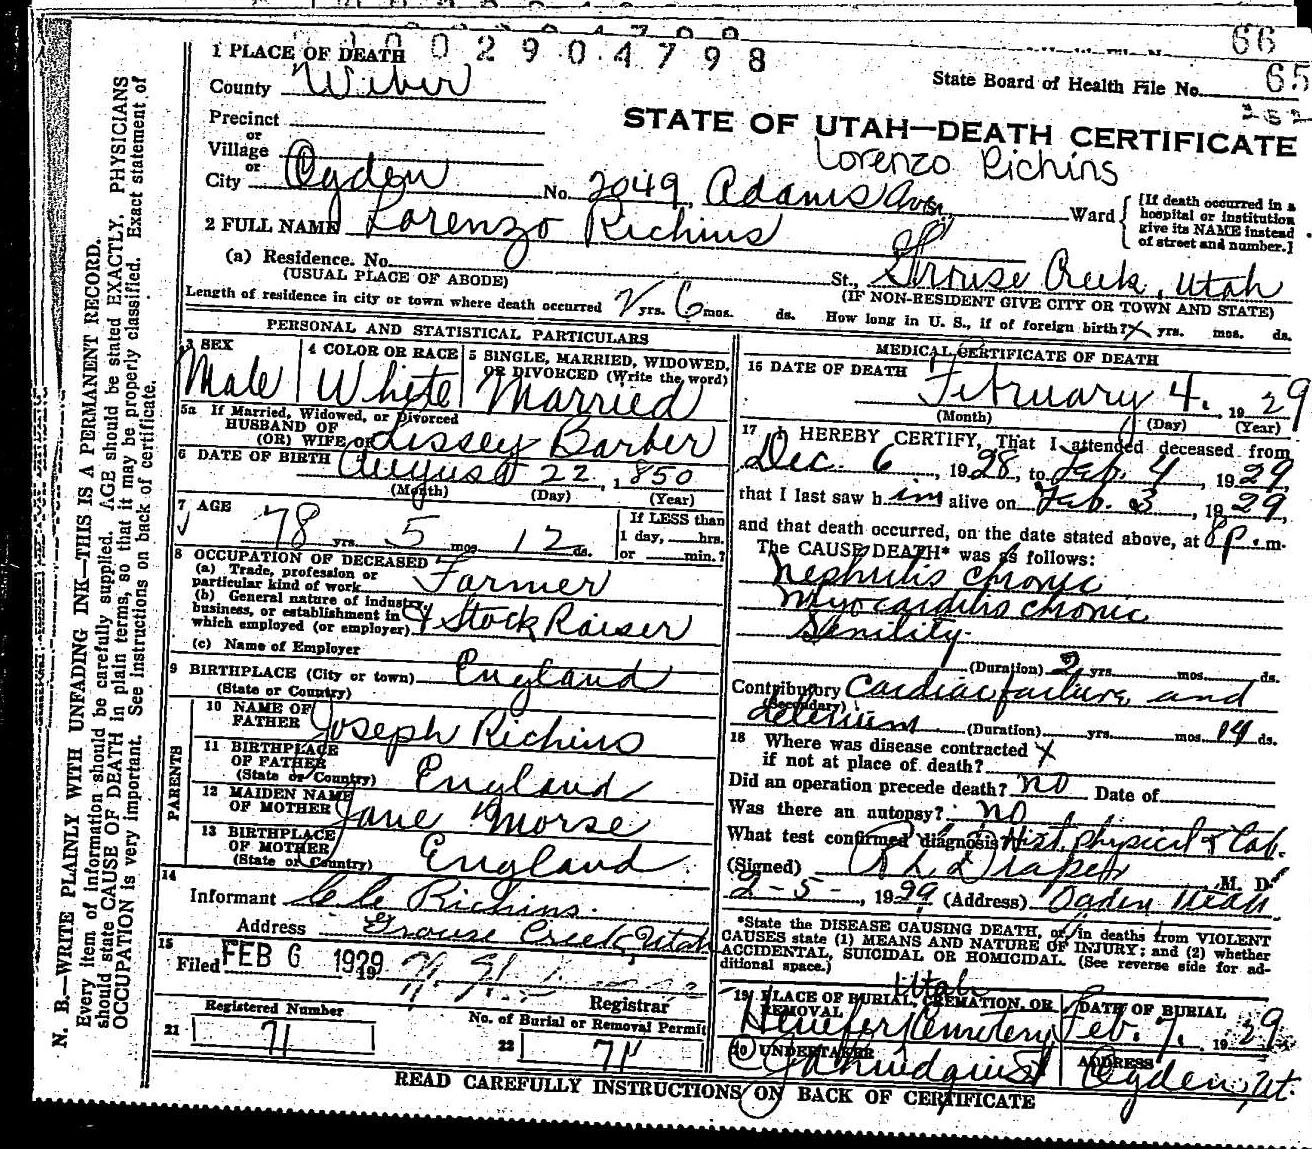 66
1 PLACE OF DEATH
10029 0.4798
State Board of Health File No. 65
County Weber
Precinct
STATE OF UTAH—DEATH CERTIFICATE
or
Village
Lorenzo Richins
or
City Ogden No. 2049 Adams Ave. Ward
[If death occurred in a hospital or institution give its NAME instead of street and number.]
2 FULL NAME Lorenzo Richins
(a) Residence. No. St., Grouse Creek, Utah
(USUAL PLACE OF ABODE)
(IF NON-RESIDENT GIVE CITY OR TOWN AND STATE)
Length of residence in city or town where death occurred yrs. 6 mos. ds. How long in U. S., if of foreign birth? X yrs. mos. ds.
PERSONAL AND STATISTICAL PARTICULARS
3 SEX
Male
4 COLOR OR RACE
White
5 SINGLE, MARRIED, WIDOWED, OR DIVORCED (Write the word)
Married
5a If Married, Widowed, or Divorced
HUSBAND OF
(OR) WIFE OF Lissey Barber
6 DATE OF BIRTH August 22, 1850
(Month) (Day) (Year)
7 AGE
78 yrs. 5 mos. 12 ds.
If LESS than
1 day, hrs.
or min.?
8 OCCUPATION OF DECEASED
(a) Trade, profession or
particular kind of work Farmer
(b) General nature of industry,
business, or establishment in
which employed (or employer) & Stock Raiser
(c) Name of Employer
9 BIRTHPLACE (City or town) England
(State or Country)
PARENTS
10 NAME OF
FATHER Joseph Richins
11 BIRTHPLACE
OF FATHER
(State or Country) England
12 MAIDEN NAME
OF MOTHER Jane Morse
13 BIRTHPLACE
OF MOTHER
(State or Country) England
14
Informant Richins.
Address Grouse Creek, Utah
15
Filed FEB 6 1929 19
Registrar
Registered Number
21 71
No. of Burial or Removal Permit
22 71
MEDICAL CERTIFICATE OF DEATH
16 DATE OF DEATH
February 4. 1929
(Month) (Day) (Year)
17 I HEREBY CERTIFY, That I attended deceased from
Dec. 6, 1928, to Feb. 4, 1929,
that I last saw him alive on Feb. 3, 1929,
and that death occurred, on the date stated above, at 8 p.m.
The CAUSE DEATH* was as follows:
Nephritis chronic
Myocarditis chronic
Senility
(Duration) 2 yrs. mos. ds.
Contributory Cardiac failure and
(Secondary)
delerium (Duration) yrs. mos. 14 ds.
18 Where was disease contracted
if not at place of death? X
Did an operation precede death? no Date of
Was there an autopsy? no
What test confirmed diagnosis? Hist, physical & Lab.
(Signed) R L Draper M. D.
2-5-, 1929 (Address) Ogden Utah.
*State the DISEASE CAUSING DEATH, or, in deaths from VIOLENT
CAUSES state (1) MEANS AND NATURE OF INJURY; and (2) whether
ACCIDENTAL, SUICIDAL OR HOMICIDAL. (See reverse side for ad-
ditional space.)
Utah
19 PLACE OF BURIAL, CREMATION, OR
REMOVAL
Henefer Cemetery
DATE OF BURIAL
Feb. 7. 1929
20 UNDERTAKER
Lindquist
ADDRESS
Ogden, Ut.
READ CAREFULLY INSTRUCTIONS ON BACK OF CERTIFICATE
N. B.—WRITE PLAINLY WITH UNFADING INK—THIS IS A PERMANENT RECORD.
Every item of information should be carefully supplied. AGE should be stated EXACTLY. PHYSICIANS
should state CAUSE OF DEATH in plain terms, so that it may be properly classified. Exact statement of
OCCUPATION is very important. See instructions on back of certificate.